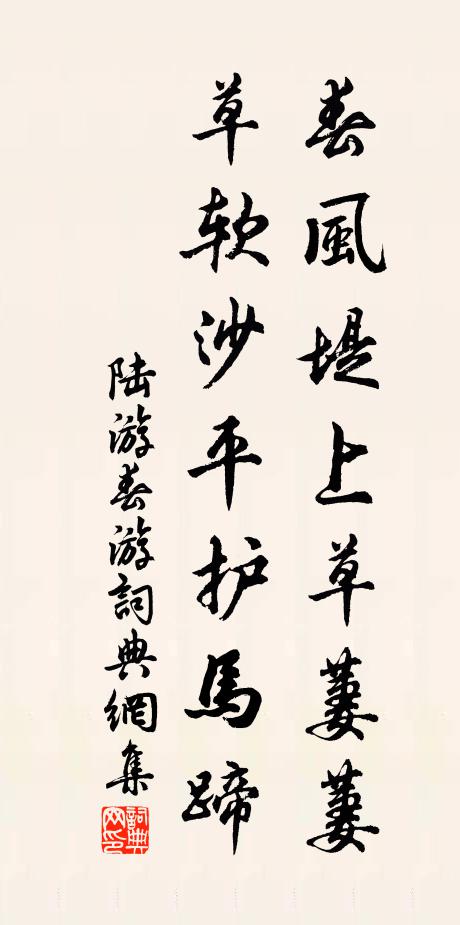 春風堤上草萋萋
草软沙平护馬蹄
陆游春游詞典網集
詞典
网印